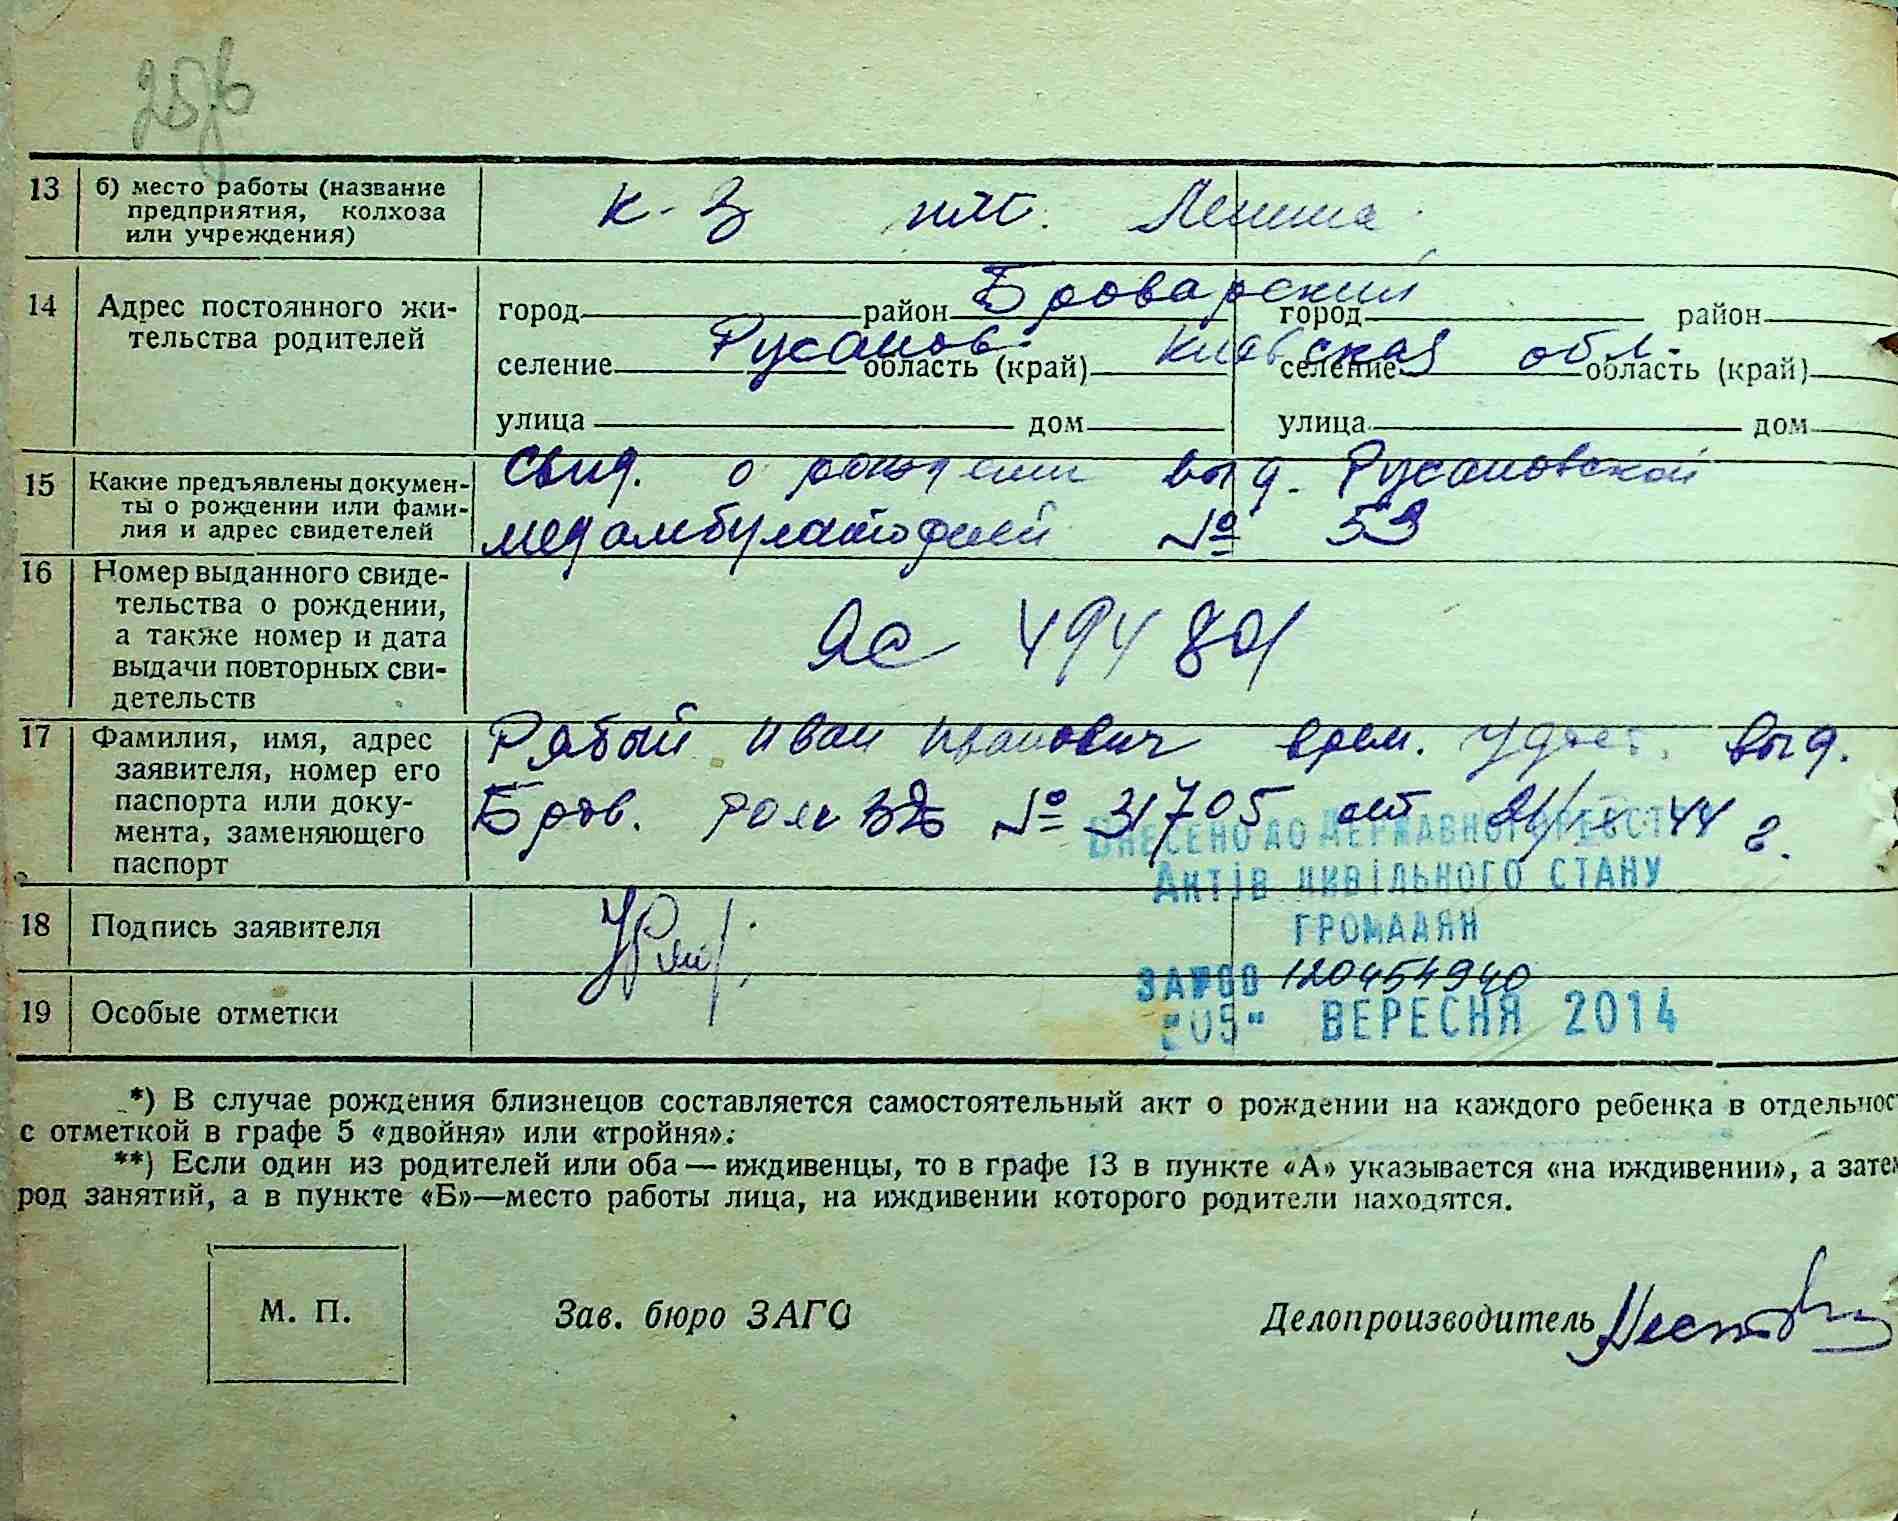 13 б) место работы (название предприятия, колхоза или учреждения) к-з им. Ленина
14 Адрес постоянного жи-
тельства родителей
город район Броварский город район
селение Русанов область (край) Киевская обл. селение область (край)
улица дом улица дом
15 Какие предъявлены докумен-
ты о рождении или фами-
лия и адрес свидетелей
Свид. о рождении выд. Русановской
медамбулаторией № 53
16 Номер выданного свиде-
тельства о рождении,
а также номер и дата
выдачи повторных сви-
детельств
ЯС 494801
17 Фамилия, имя, адрес
заявителя, номер его
паспорта или доку-
мента, заменяющего
паспорт
Рябый Иван Иванович врем. удост. выд.
Бров. № 31705 от 44 г.
ВНЕСЕНО ДО ДЕРЖАВНОГО РЕЄСТ
АКТІВ ЦИВІЛЬНОГО СТАНУ
ГРОМАДЯН
18 Подпись заявителя
ЗА №00 120454940
"05" ВЕРЕСНЯ 2014
19 Особые отметки
*) В случае рождения близнецов составляется самостоятельный акт о рождении на каждого ребенка в отдельнос
с отметкой в графе 5 «двойня» или «тройня».
**) Если один из родителей или оба — иждивенцы, то в графе 13 в пункте «А» указывается «на иждивении», а зате
род занятий, а в пункте «Б»—место работы лица, на иждивении которого родители находятся.
М. П. Зав. бюро ЗАГС Делопроизводитель